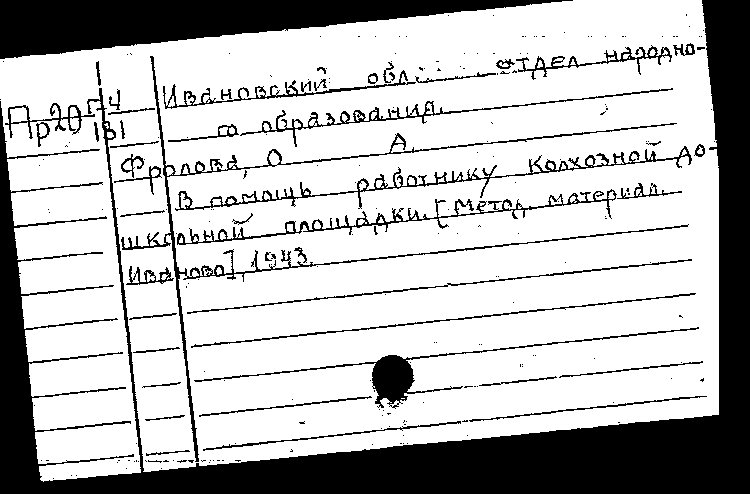 Пр20г4
181
Ивановский обл. отдел народно-
го образования.
Фролова, О А.
В помощь работнику колхозной до-
школьной площадки. [Метод. материал.
Иваново], 1943.